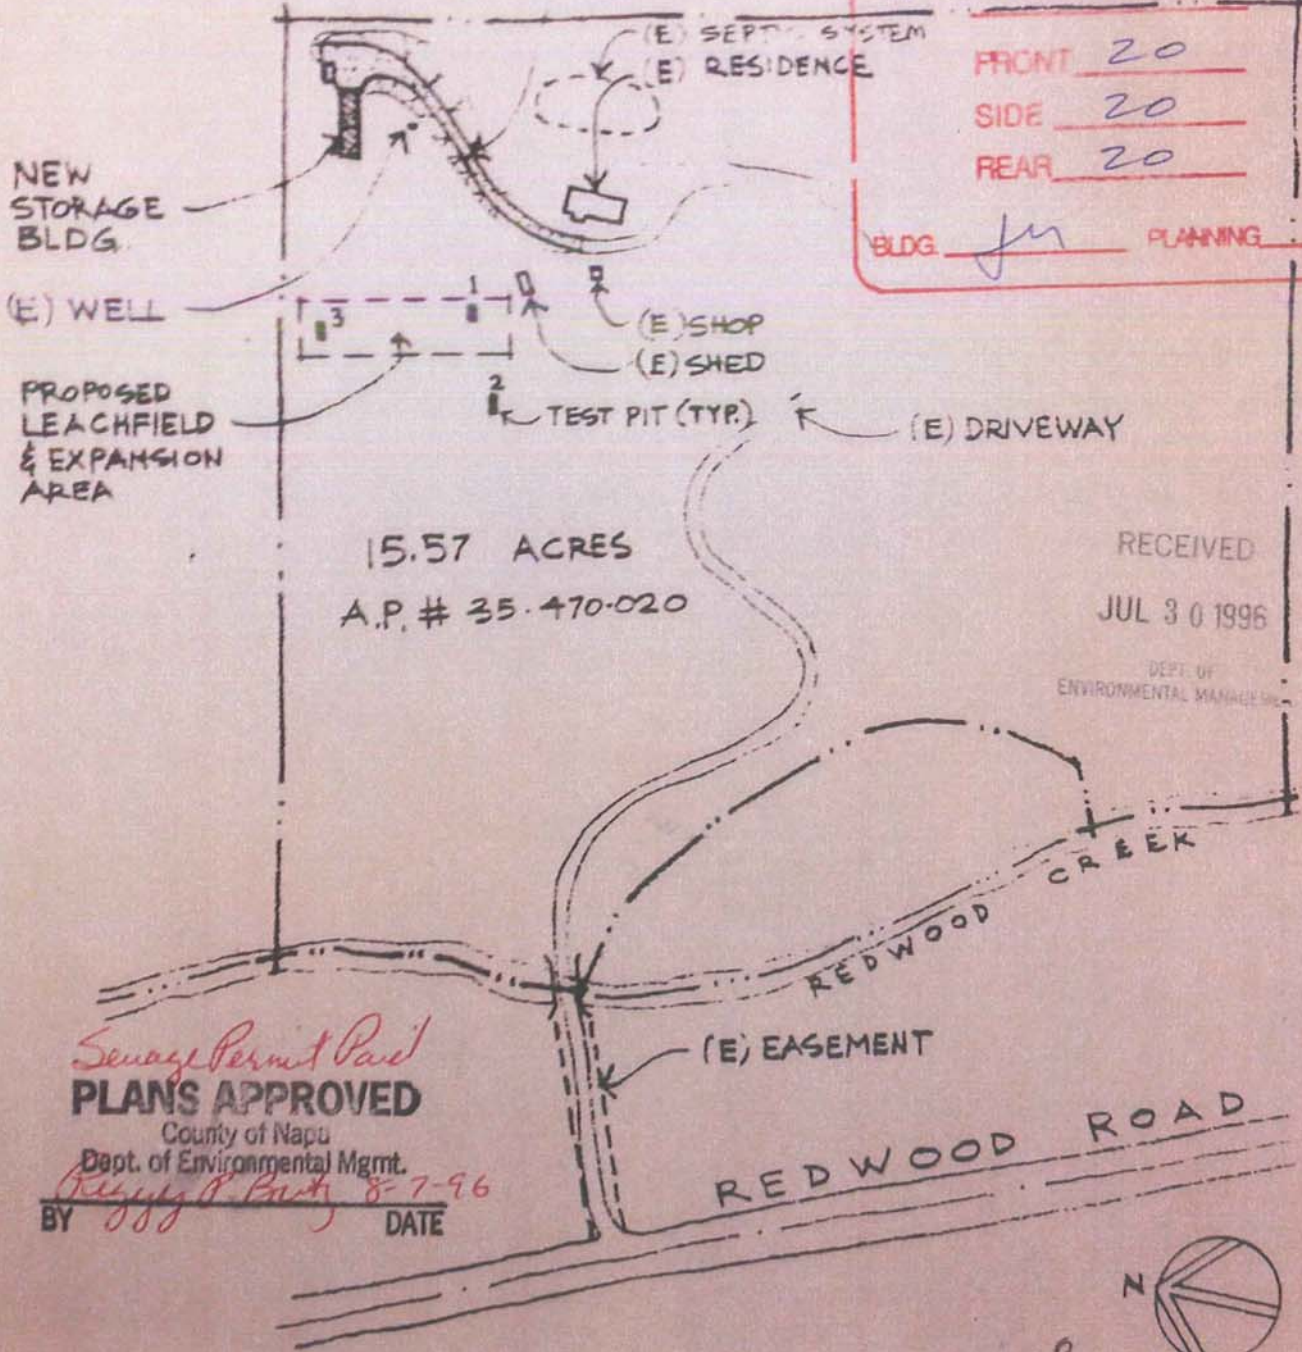 (E) SYSTEM
(E) RESIDENCE
FRONT 20
SIDE 20
REAR 20
BLDG. PLANNING
NEW
STORAGE
BLDG.
(E) WELL
1
3
2
(E) SHOP
(E) SHED
PROPOSED
LEACHFIELD
& EXPANSION
AREA
TEST PIT (TYP.)
(E) DRIVEWAY
15.57 ACRES
A.P. # 35.470-020
RECEIVED
JUL 30 1996
DEPT. OF
ENVIRONMENTAL
REDWOOD CREEK
(E) EASEMENT
REDWOOD ROAD
Sewage Permit Paid
PLANS APPROVED
County of Napa
Dept. of Environmental Mgmt.
8-7-96
BY DATE
N